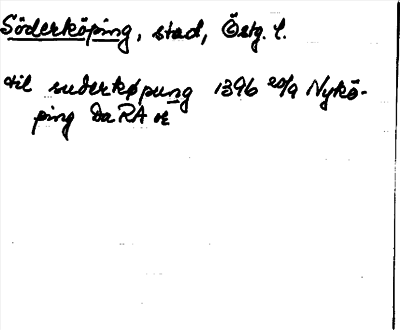 Söderköping, stad, Östg. l.
til suderkøpung 1396 20/9 Nykö-
ping DaRA